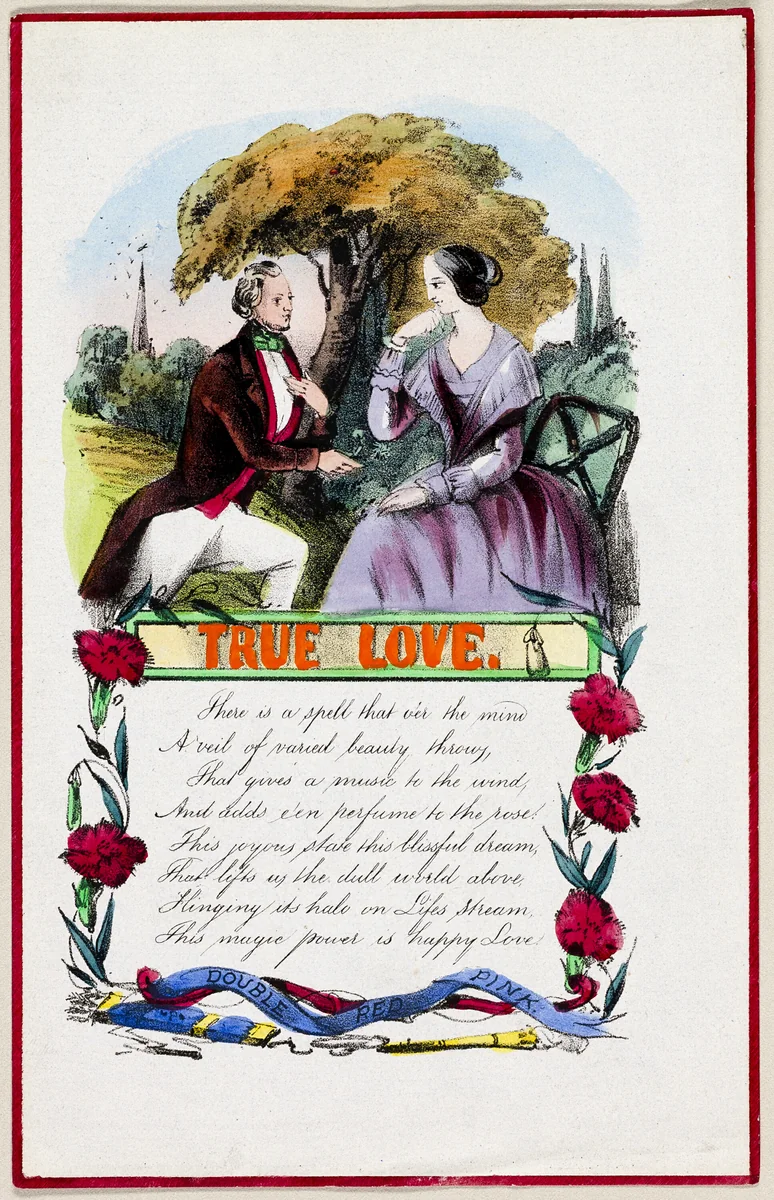 TRUE LOVE.
There is a spell that o'er the mind
A veil of varied beauty throws,
That gives a music to the wind,
And adds e'en perfume to the rose!
This joyous state this blissful dream,
That lifts us the dull world above,
Flinging its halo on Lifes Stream,
This magic power is happy Love!
DOUBLE RED PINK